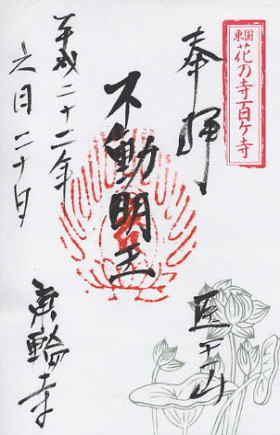 東国
花の寺百ヶ寺
奉拝
医王山
不動明王
平成二十二年
六月二十日
輪寺